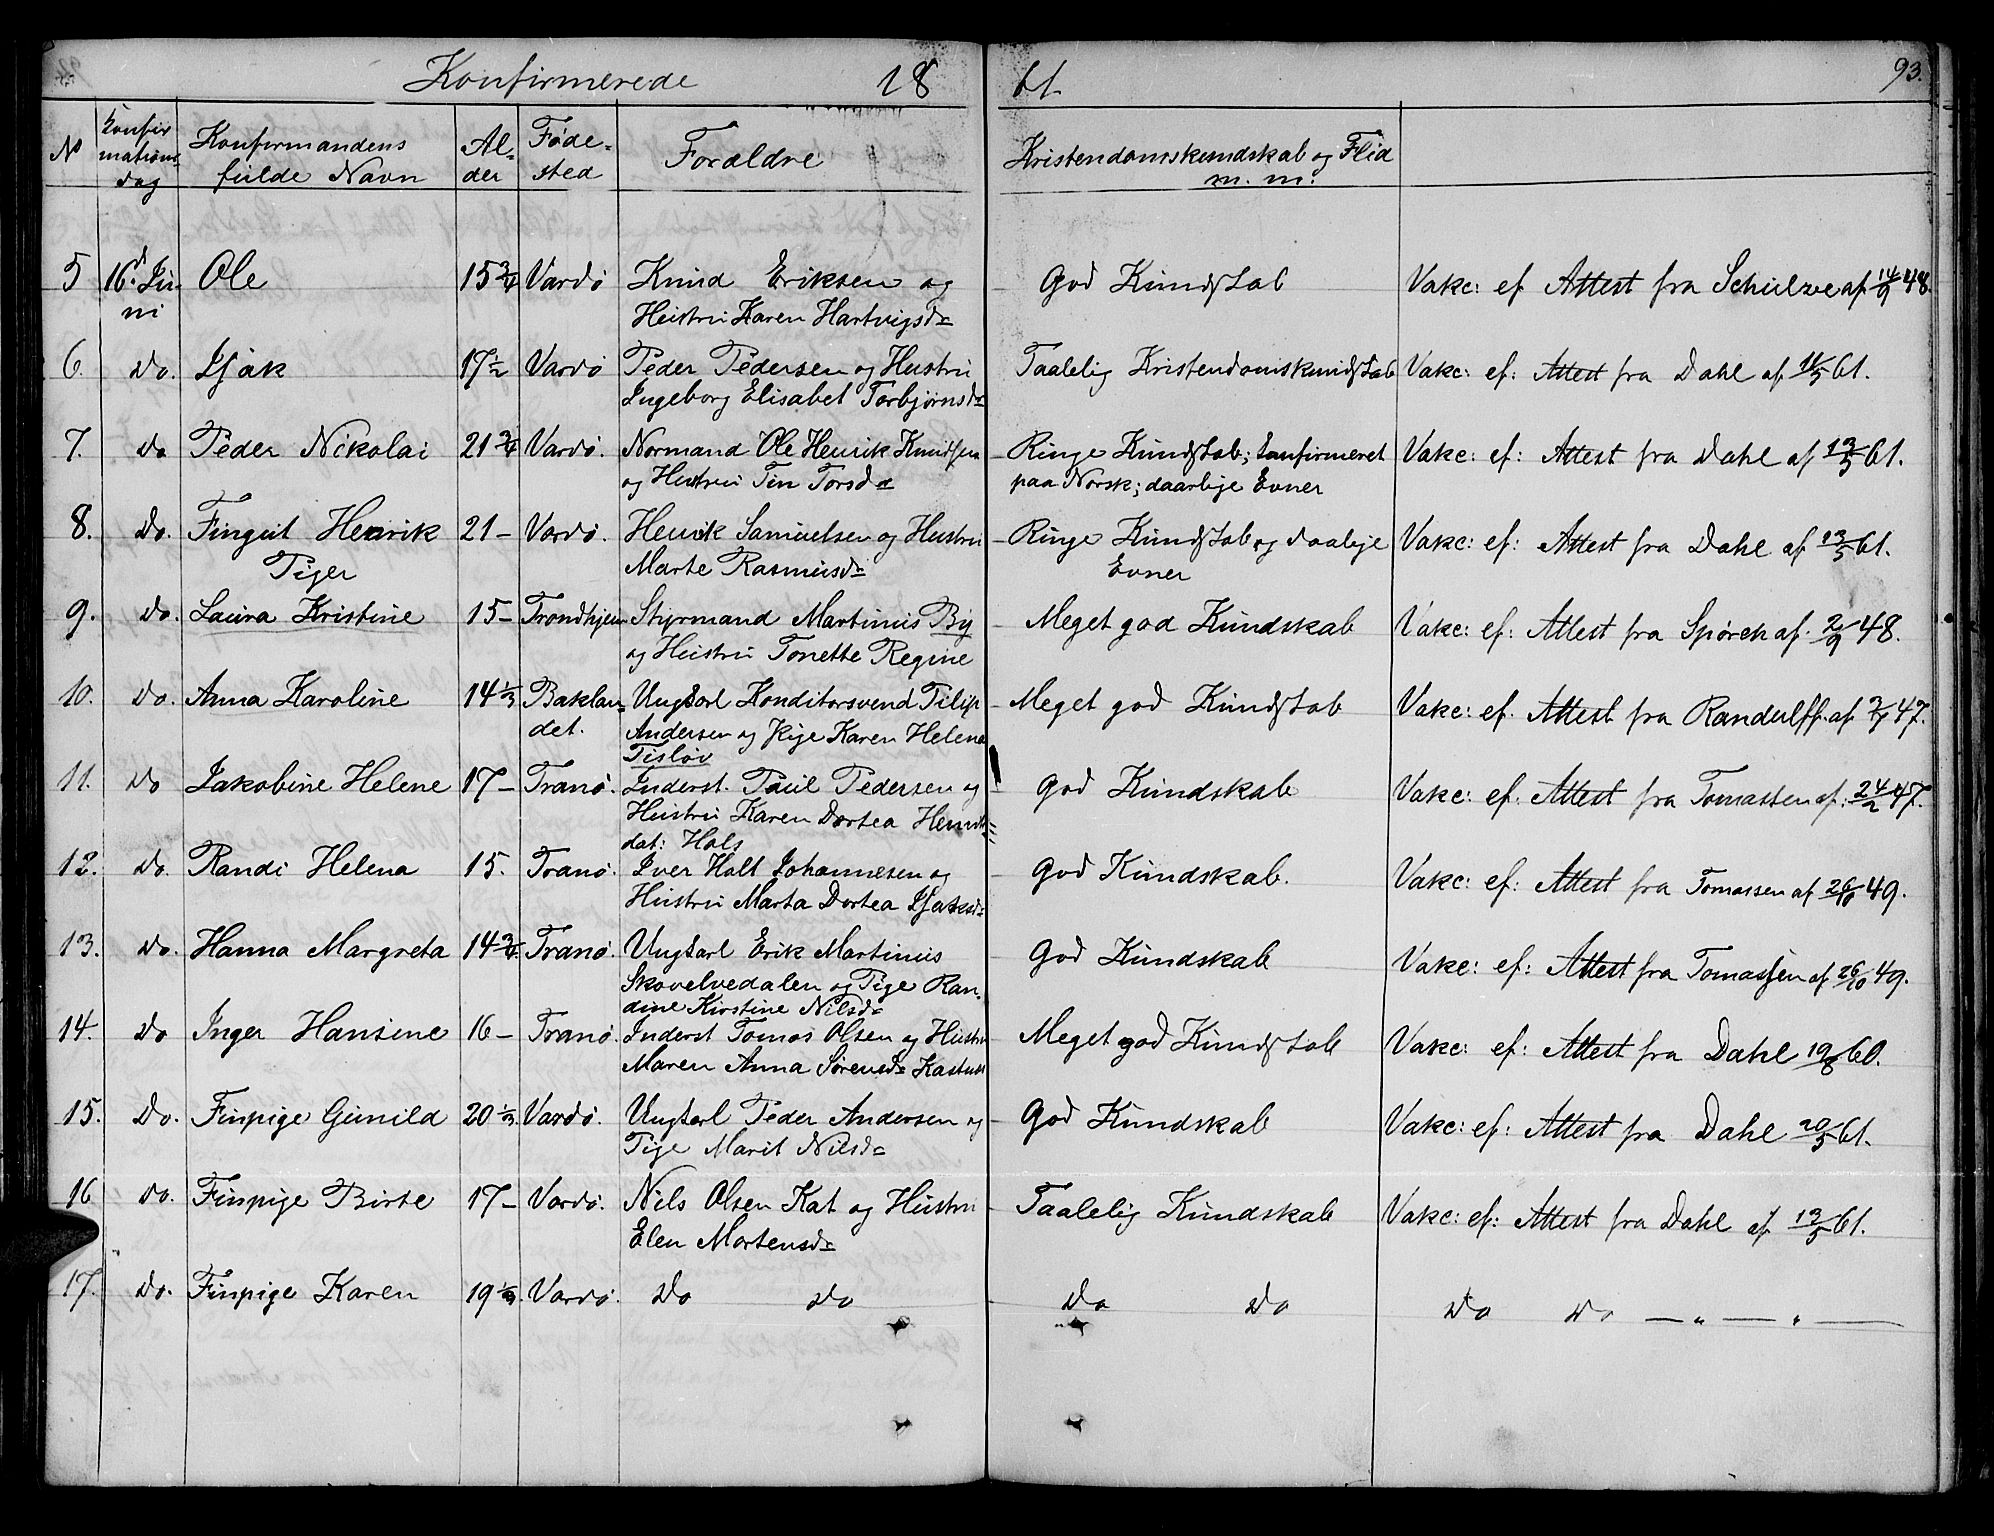 Konfirmerede 18 61. 93.
N
Konfirmationsdag
Konfirmandens fulde Navn
Alder
Fødested
Forældre
Kristendomskundskab og Flid m. m.
5 16d Juni Ole 15 3/4 Vardø Knud Eriksen og God Kundskab Vakc: ef Attest fra Schulze af 14/9 48.
Hustru Karen Hartvigsdr
6. Do. Isak 17 1/2 Vardø Peder Pedersen og Hustru Taalelig Kristendomskundskab Vakc: ef: Attest fra Dahl af 11/5 61.
Ingeborg Elisabet Torbjørnsdr
7. Do Peder Nikolai 21 3/4 Vardø. Normand Ole Henrik Knudsen Ringe Kundskab; konfirmeret Vakc: ef: Attest fra Dahl af 13/5 61.
og Hustru Tin Torsdr paa Norsk; daarlige Evner
8. Do. Fingut Henrik 21 – Vardø. Henrik Samuelsen og Hustru Ringe Kundskab og daalige Vakc: ef: Attest fra Dahl af 13/5 61.
Tiger Marte Rasmusdr Evner
9. Do. Laura Kristine 15 – Trondhjem Styrmand Martinus By Meget god Kundskab Vakc: ef: Attest fra Spørck af 2/9 48.
og Hustru Tonette Regine
10. Do. Anna Karoline 14 1/3 Baklan= Ungkarl Konditorsvend Filip Meget god Kundskab Vakc: ef. Attest fra Randulff af 2/7 47.
det. Andersen og Pige Karen Helena
Tisløv
11. Do Jakobine Helene 17 – Tranø. Inderst. Paul Pedersen og God Kundskab Vakc: ef. Attest fra Tomassen af: 24/2 47.
Hustru Karen Dortea Henriks=
dat: Hals
12. Do. Randi Helena 15. Tranø. Iver Holt Johannesen og God Kundskab. Vakc: ef: Attest fra Tomassen af 26/10 49.
Hustru Marta Dortea Isaksdr
13. Do. Hanna Margreta 14 3/4 Tranø. Ungkarl Erik Martinus God Kundskab Vakc: ef: Attest fra Tomassen af 26/10 49.
Skovelvedalen og Pige Ran=
dine Kirstine Nilsdr
14. Do Inger Hansine 16 – Tranø. Inderst Tomas Olsen og Hustru Meget god Kundskab Vakc: ef: Attest fra Dahl 19/8 60.
Maren Anna Sørensdr
15. Do. Finpige Gunild 20 1/3 Vardø. Ungkarl Peder Andersen og God Kundskab Vakc: ef: Attest fra Dahl 20/5 61.
Pige Marit Nilsdr
16 Do. Finpige Birte 17 – Vardø. Nils Olsen Kat og Hustru Taalelig Kundskab Vakc: ef: Attest fra Dahl af 13/5 61.
Elen Mortensdr
17. Do. Finpige Karen 19 1/3 Vardø. Do Do Do Do Do Do — „ — „ —